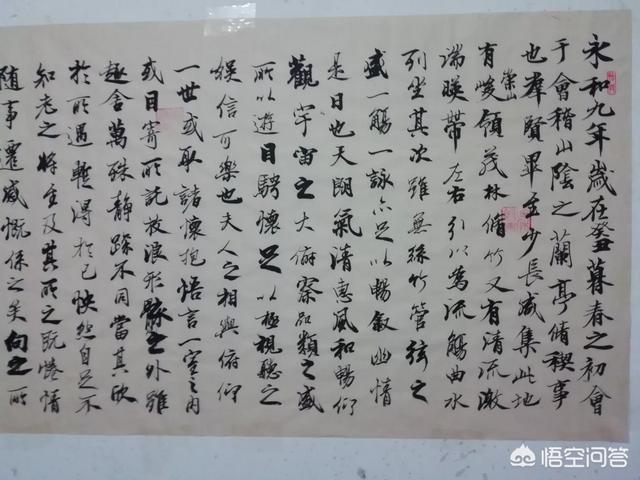 永和九年歲在癸暮春之初會
于會稽山陰之蘭亭脩稧事
也羣賢畢至少長咸集此地
有崇山峻領茂林脩竹又有清流激
湍暎帶左右引以為流觴曲水
列坐其次雖無絲竹管弦之
盛一觴一詠亦足以暢敘幽情
是日也天朗氣清惠風和暢仰
觀宇宙之大俯察品類之盛
所以遊目騁懷足以極視聽之
娛信可樂也夫人之相與俯仰
一世或取諸懷抱悟言一室之內
或因寄所託放浪形骸之外雖
趣舍萬殊靜躁不同當其欣
於所遇蹔得於己怏然自足不
知老之將至及其所之既惓情
隨事遷感慨係之矣向之所
悟空问答